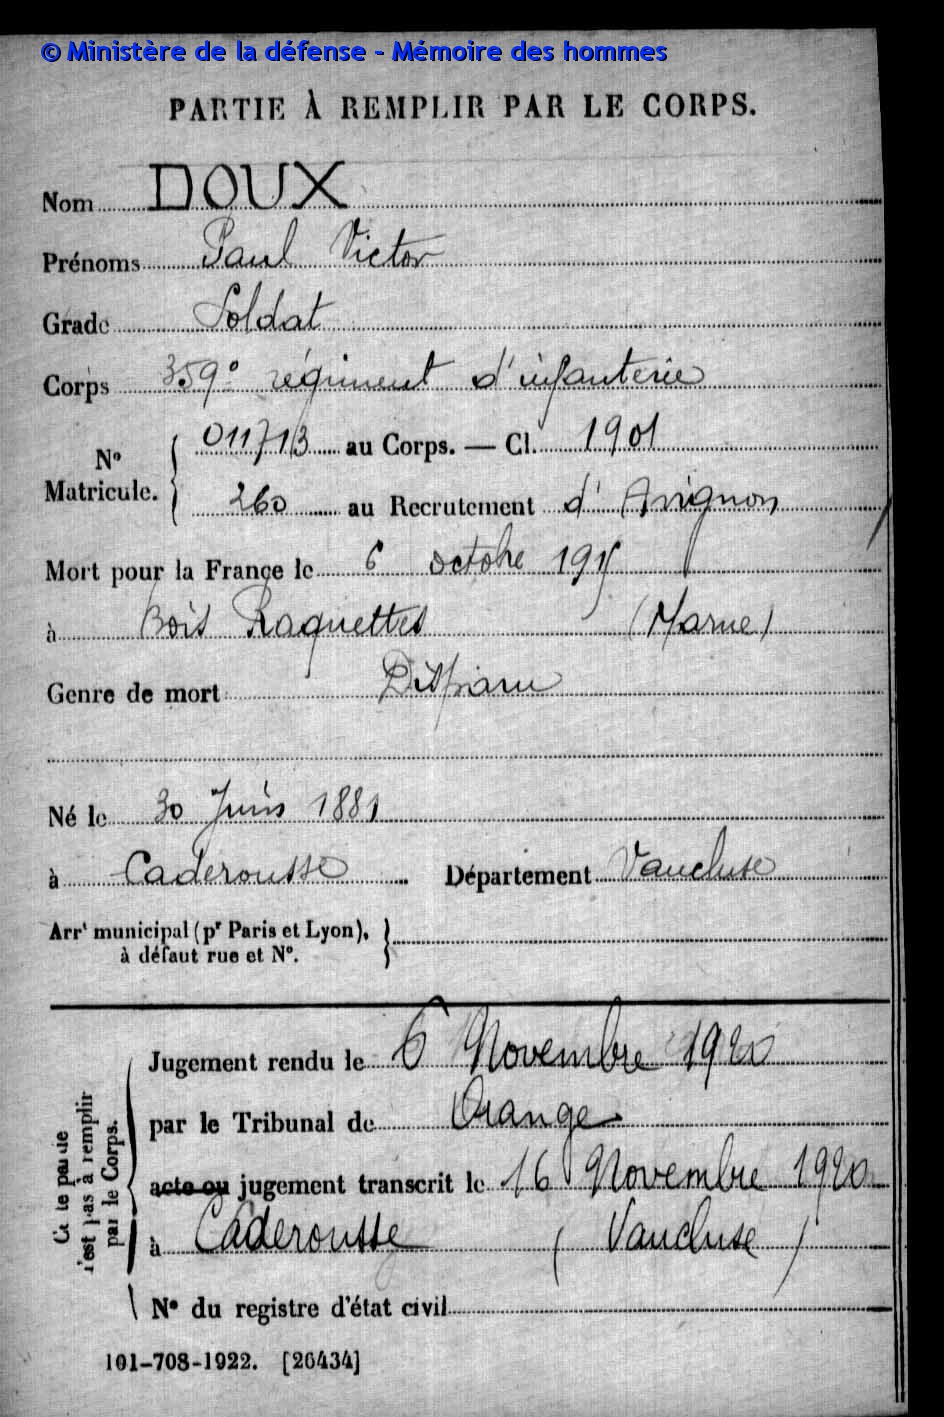 © Ministère de la défense - Mémoire des hommes
PARTIE À REMPLIR PAR LE CORPS.
Nom DOUX
Prénoms Paul Victor
Grade Soldat
Corps 359e régiment d'infanterie
N° Matricule. { 011713 au Corps. — Cl. 1901
260 au Recrutement d'Avignon
Mort pour la France le 6 octobre 1915
à Bois Raquettes (Marne)
Genre de mort Disparu
Né le 30 Juin 1881
à Caderousse Département Vaucluse
Arrt municipal (pr Paris et Lyon),
à défaut rue et N°.
Cette partie n'est pas à remplir par le Corps.
Jugement rendu le 6 Novembre 1920
par le Tribunal de Orange
acte ou jugement transcrit le 16 Novembre 1920
à Caderousse (Vaucluse)
N° du registre d'état civil
101-708-1922. [26434]